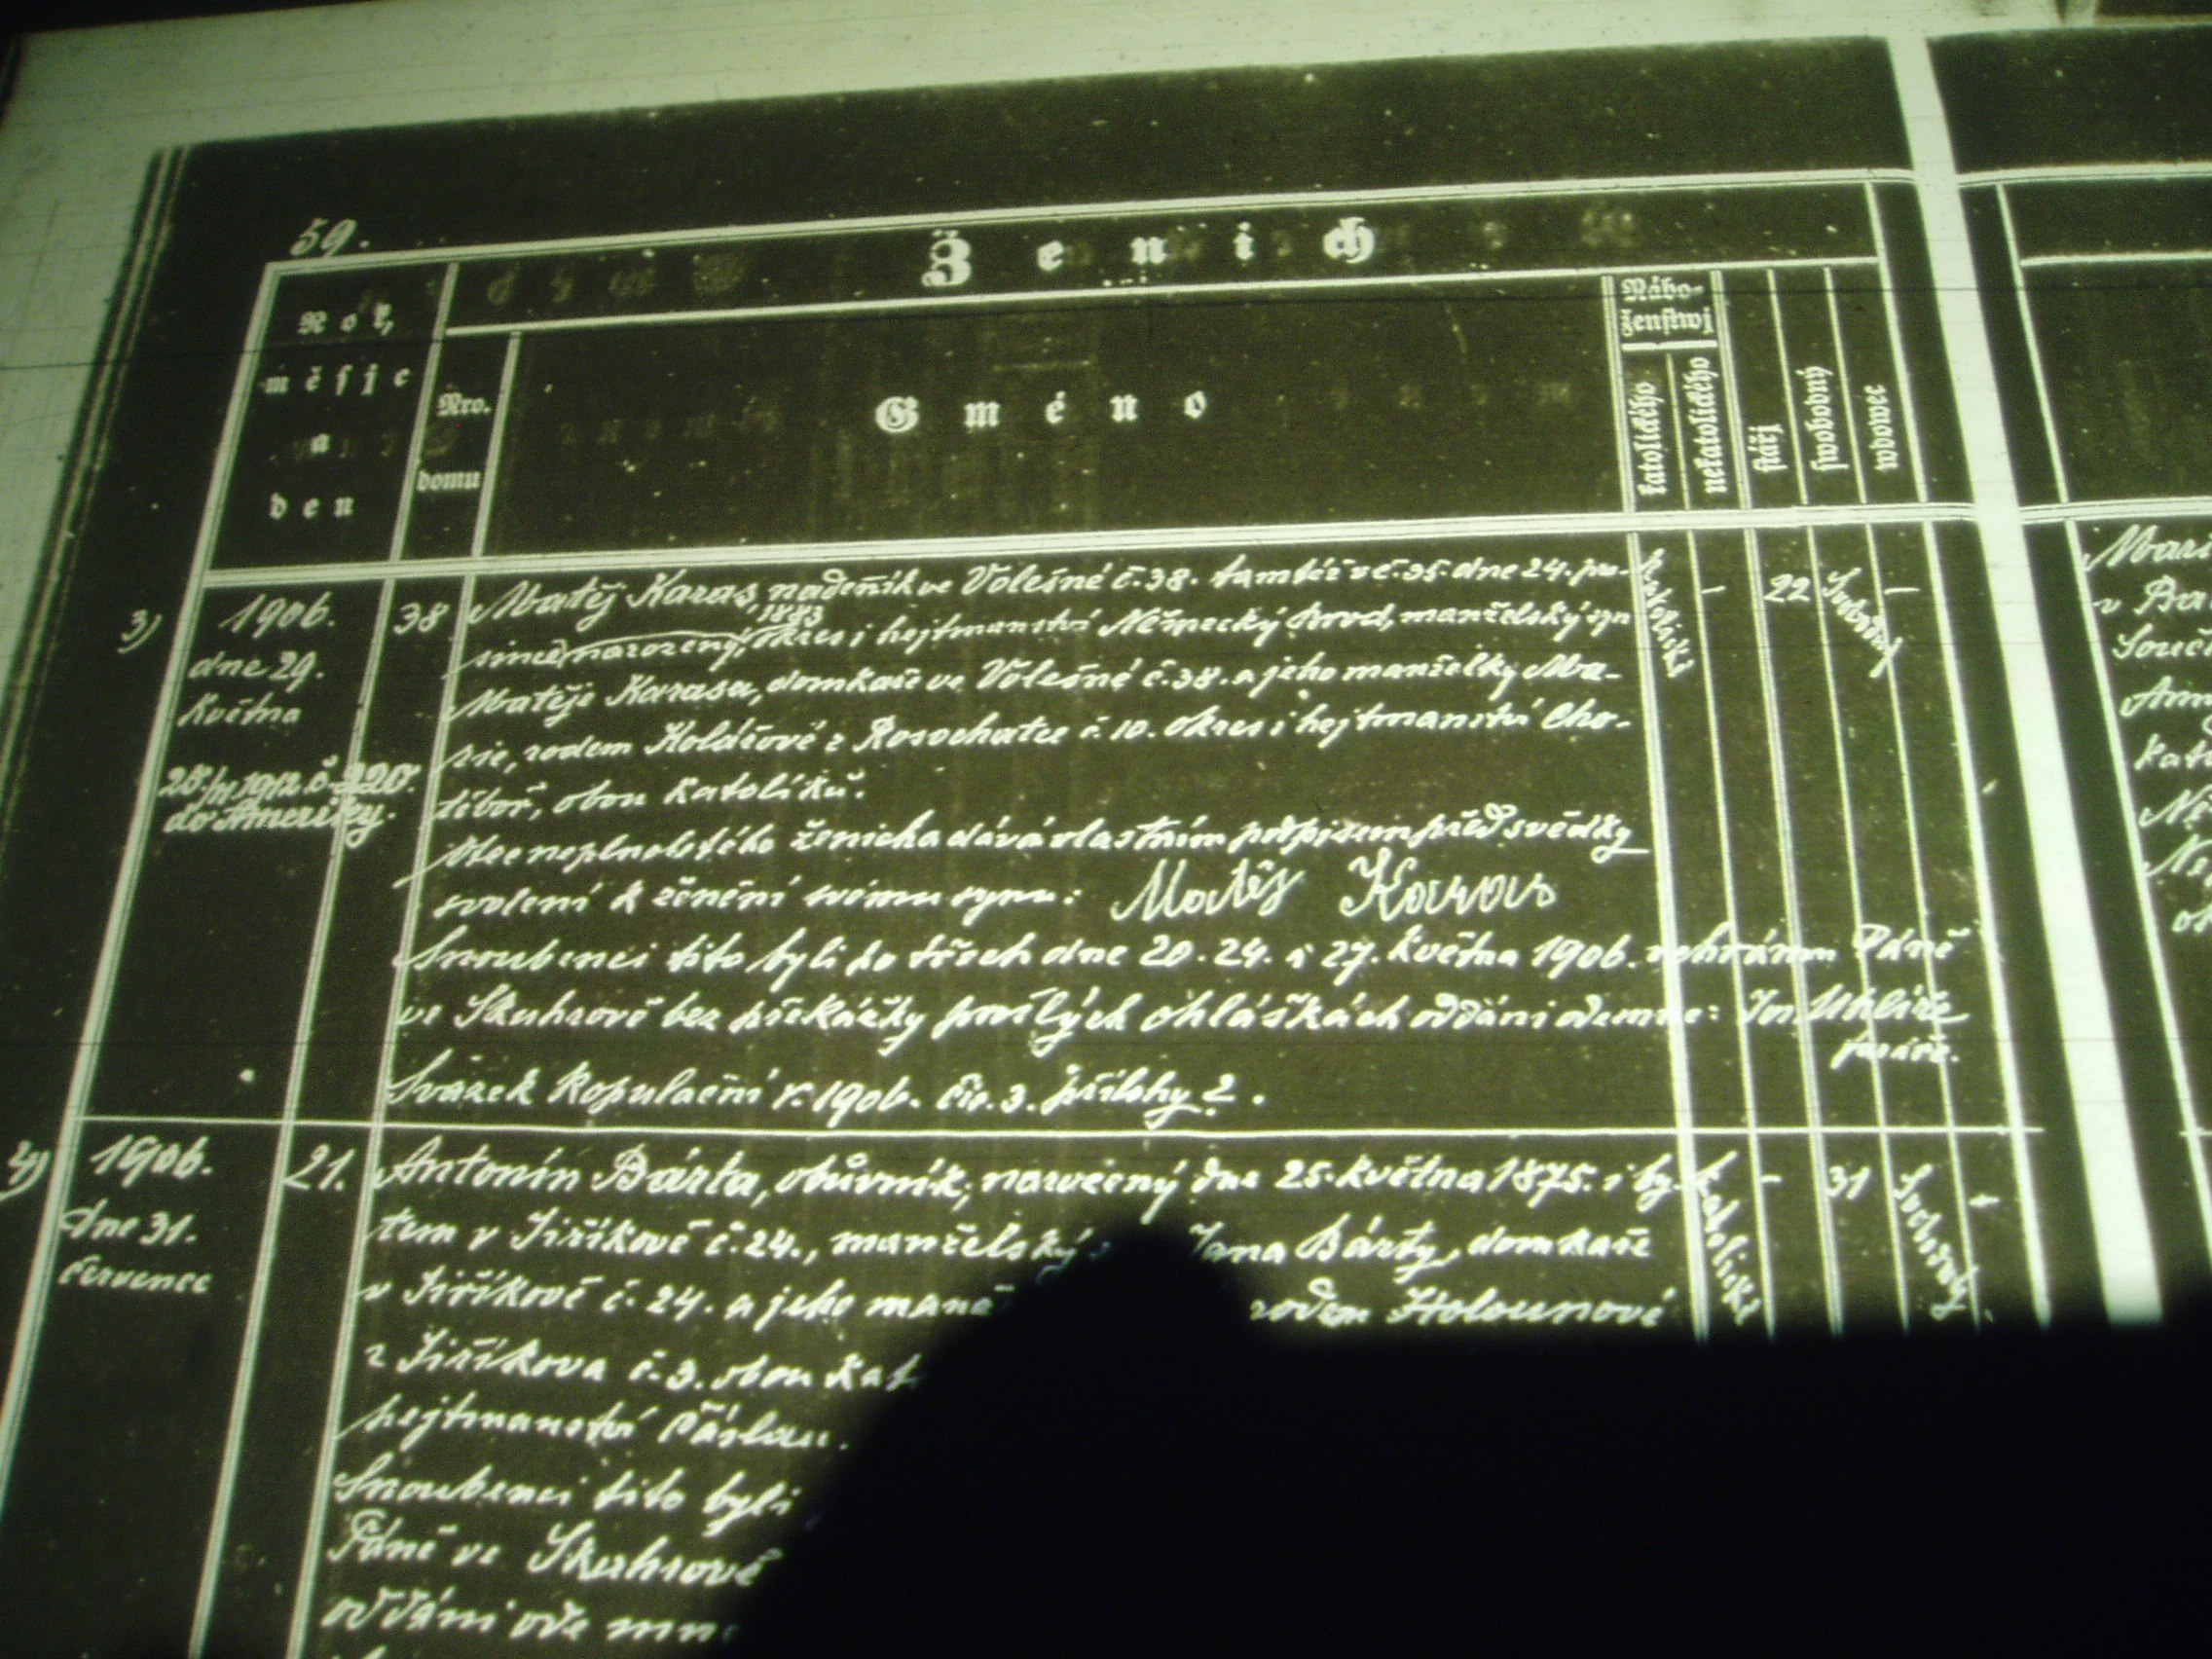 59.
Ženich
Rok,
měsjc
a
den
Nro.
domu
Gméno
Nábo-
ženstwj
katolického
nekatolického
stářj
swobodný
wdowec
3) 1906. 38 Matěj Karas, nadeník ve Volešné č. 38. tamtéž v č. 35. dne 24. pro- katolické – 22 Svobodný –
dne 29. 1883
since narozený, okres i hejtmanství Německý Brod, manželský syn
května Matěje Karasa, domkaře ve Volešné č. 38. a jeho manželky Ma-
rie, rodem Kolářové z Rosochatce č. 10. okres i hejtmanství Cho-
28./11 1912 č. 220. těboř, obou katolíků.
do Ameriky.
Otec neplnoletého ženicha dává vlastním podpisem před svědky
svolení k ženění svému synu: Matěj Karas
Snoubenci tito byli po třech dne 20. 24. i 27. května 1906. v chrámu Páně
ve Skuhrově bez překážky prošlých ohláškách oddáni odemne: Jos.
farář.
Svazek kopulační r. 1906. čís. 3. přílohy 2.
4) 1906. 21. Antonín Bárta, obůvník, narozený dne 25. května 1875. i by- katolické – 31 Svobodný –
dne 31. tem v Jiříkově č. 24., manželský Jana Bárty, domkaře
července v Jiříkově č. 24. a jeho man rodem Holounové
z Jiříkova č. 3. obou kat
hejtmanství Čáslau.
Snoubenci tito byli
Páně ve Skuhrově
oddáni ode mn
Mari
v
Souč
Ann
kato
Ně
ob